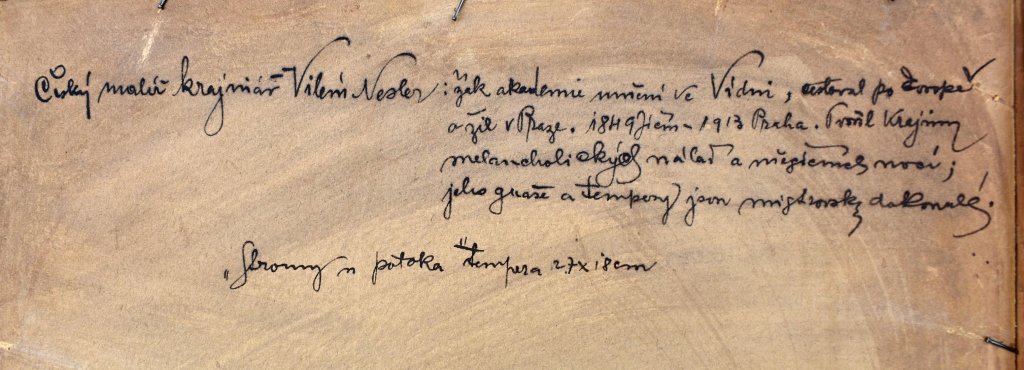 Český malíř krajinář Vilém Nesler: žák akademie umění ve Vídni, cestoval po Evropě
a žil v Praze. 1849 Jičín - 1913 Praha. Tvořil Krajiny
melancholických nálad a měsíčních nocí;
jeho guaše a tempery jsou mistrovsky dokonalé.
„Stromy u potoka" tempera 27x18cm